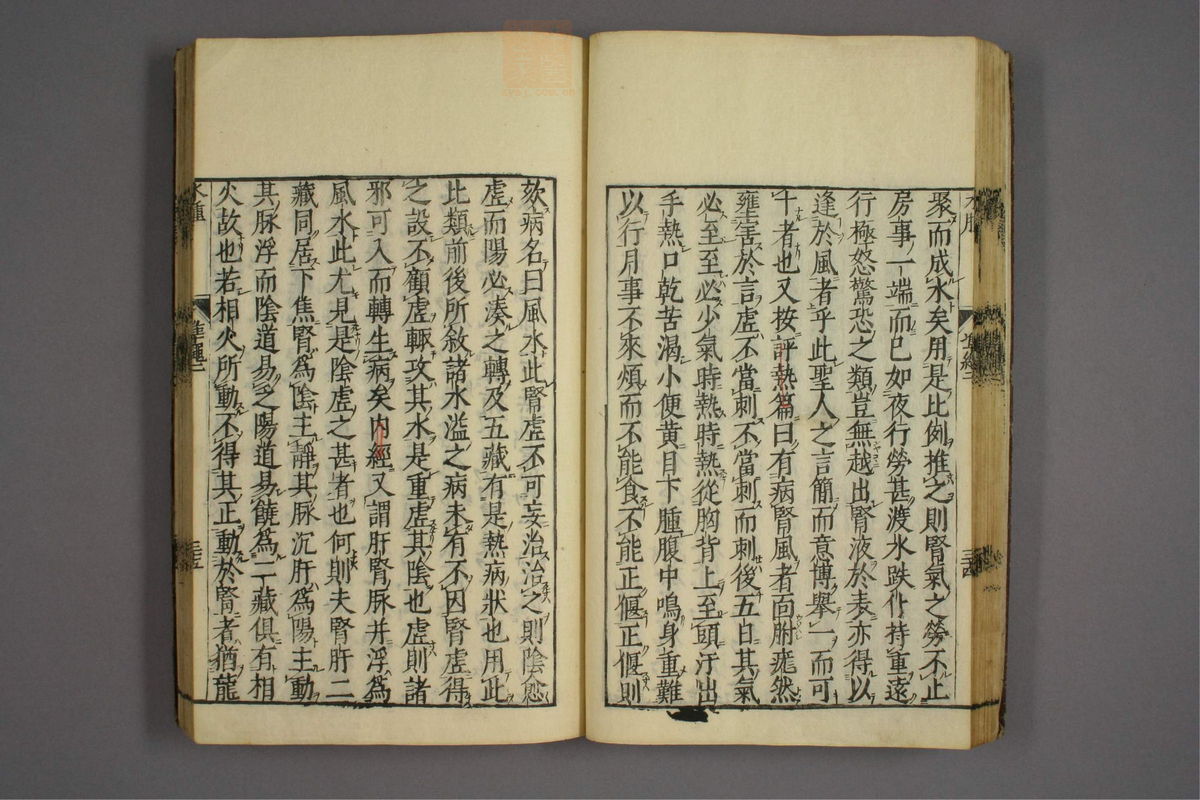 聚而成水矣用是比例推之則腎氣之勞不止
房事一端而已如夜行勞甚渡水跌仆持重遠
行極怒驚恐之類豈無越出腎液於表亦得以
逢於風者乎此聖人之言簡而意博舉一而可
十者也又按評熱篇曰有病腎風者面胕痝然
壅害於言虛不當刺不當刺而刺後五日其氣
必至至必少氣時熱時熱從胸背上至頭汗出
手熱口乾苦渴小便黃目下腫腹中鳴身重難
以行月事不來煩而不能食不能正偃正偃則
欬病名曰風水此腎虛不可妄治治之則陰愈
虛而陽必湊之轉及五藏有是熱病狀也用此
比類前後所敘諸水溢之病未有不因腎虛得
之設不顧虛輒攻其水是重虛其陰也虛則諸
邪可入而轉生病矣內經又謂肝腎脉并浮為
風水此尤見是陰虛之甚者也何則夫腎肝二
藏同居下焦腎為陰主靜其脉沉肝為陽主動
其脉浮而陰道易乏陽道易饒為二藏俱有相
火故也若相火所動不得其正動於腎者猶龍
水腫
準繩二
三五